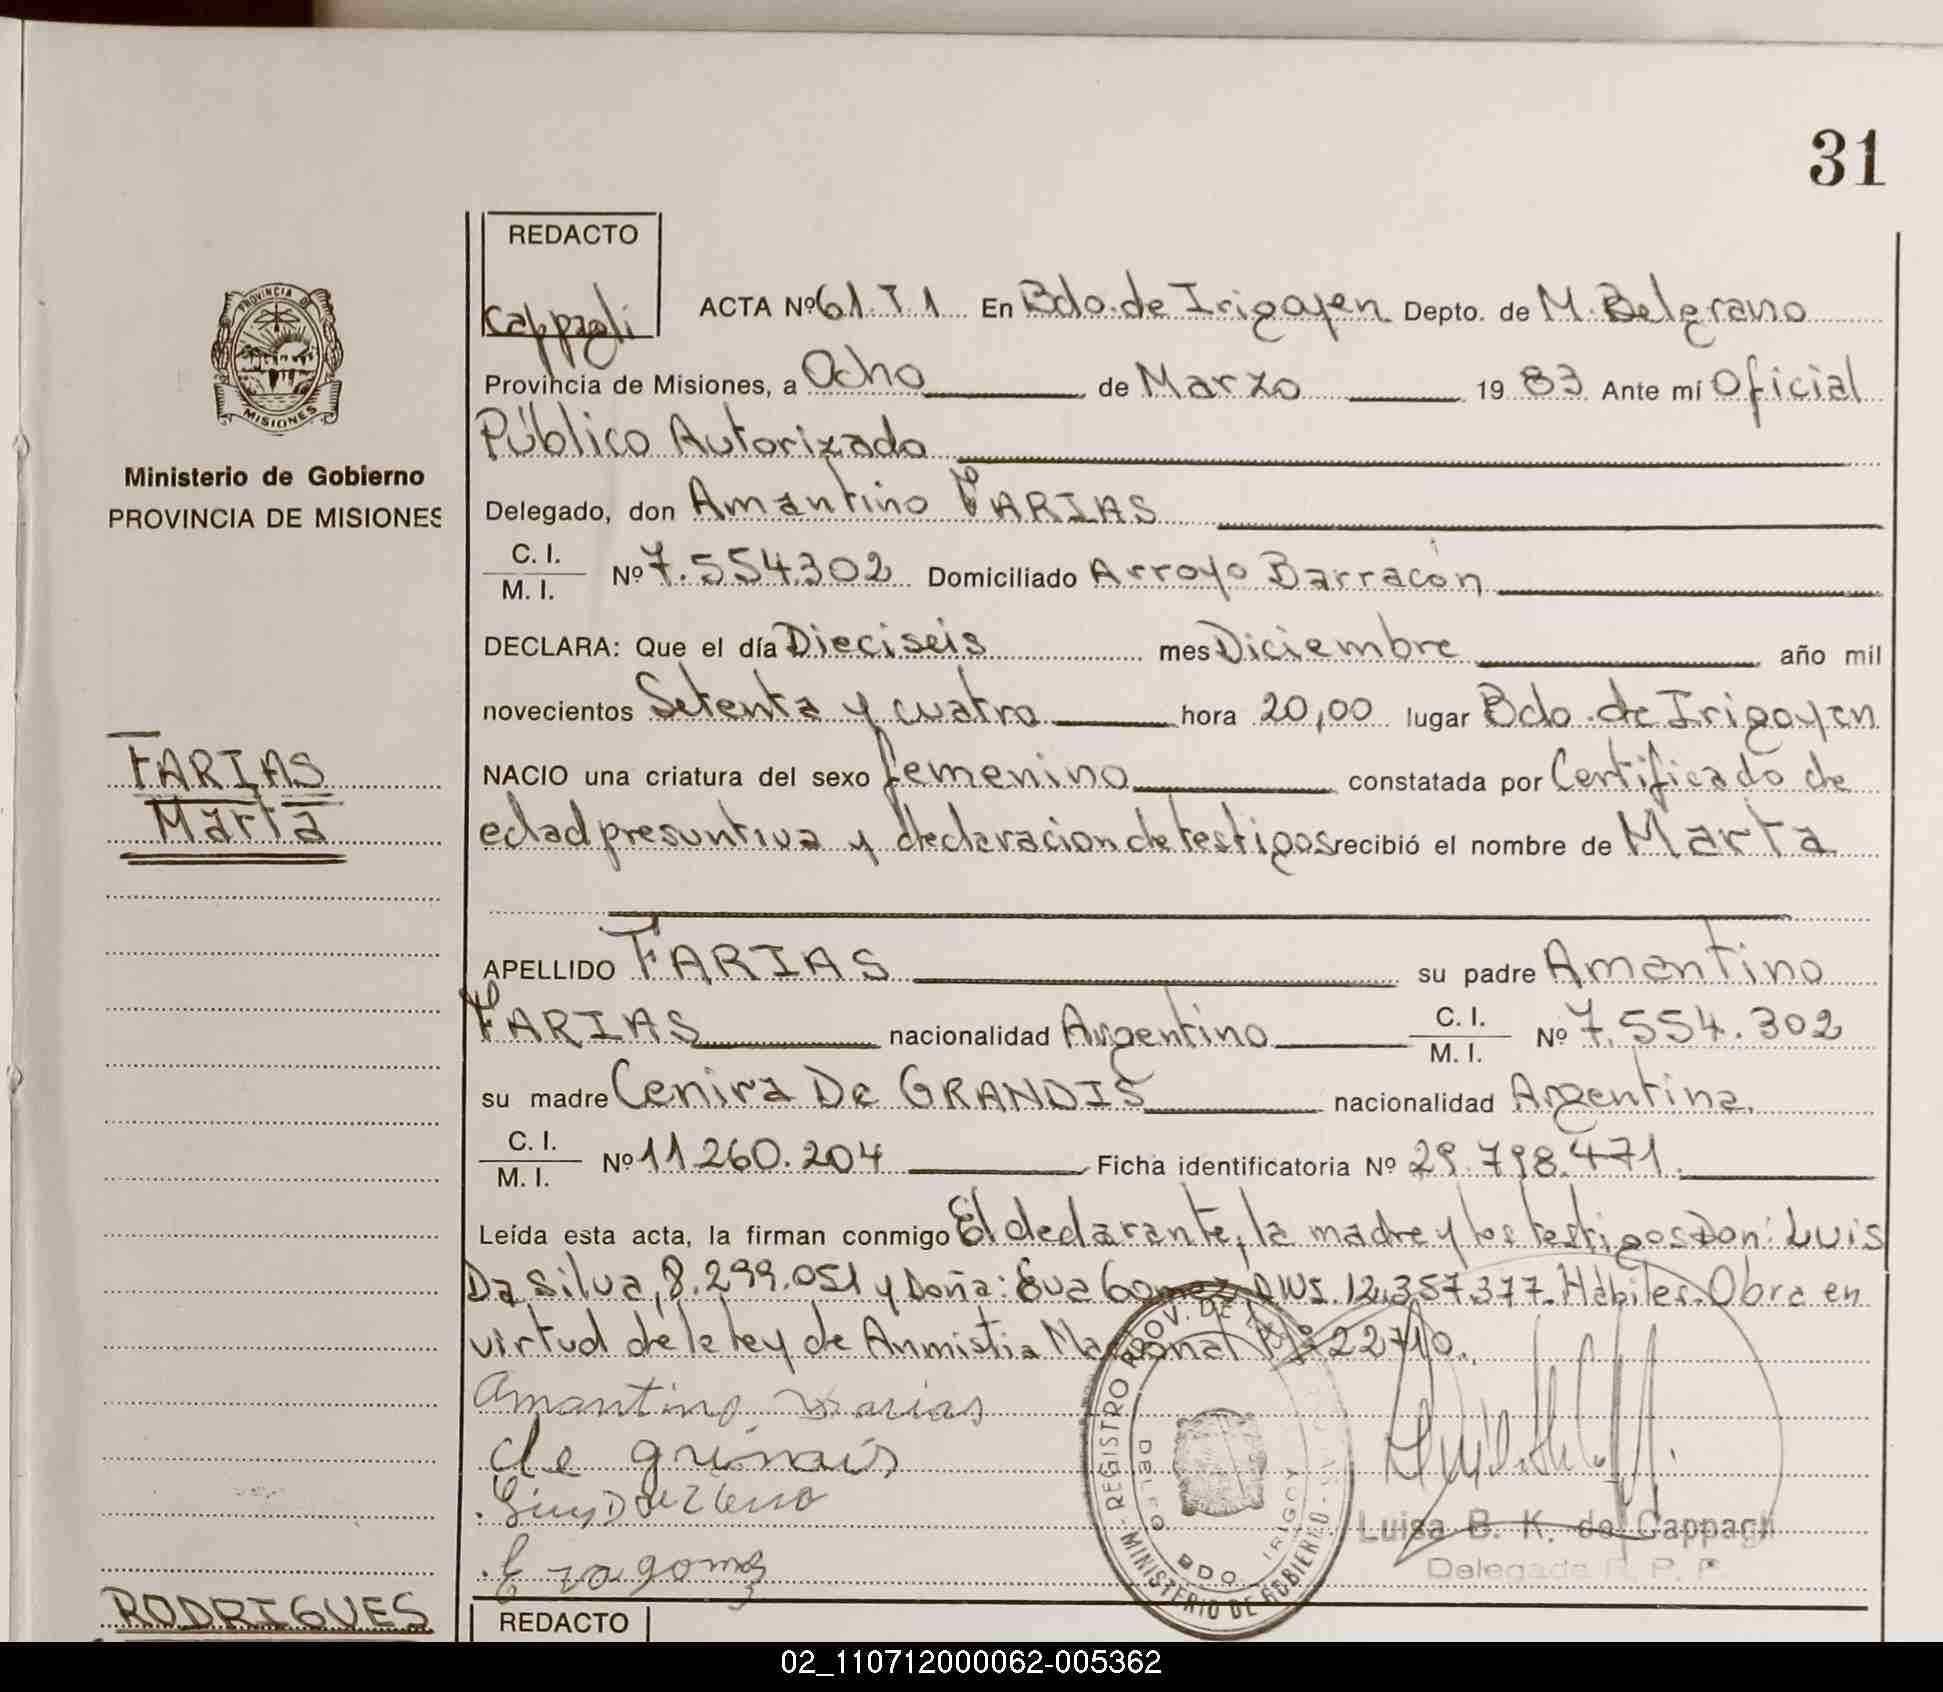 31
REDACTO
Cappagli
ACTA Nº 61.T.1 En Bdo. de Irigoyen Depto. de M. Belgrano
Provincia de Misiones, a Ocho de Marzo 1983 Ante mí Oficial
Público Autorizado
Delegado, don Amantino FARIAS
C. I.
M. I.
Nº 7.554.302 Domiciliado Arroyo Barracón
DECLARA: Que el día Dieciseis mes Diciembre año mil
novecientos Setenta y cuatro hora 20,00 lugar Bdo. de Irigoyen
NACIO una criatura del sexo femenino constatada por Certificado de
edad presuntiva y declaracion de testigos recibió el nombre de Marta
APELLIDO FARIAS su padre Amantino
FARIAS nacionalidad Argentino C. I. M. I. Nº 7.554.302
su madre Cenira De GRANDIS nacionalidad Argentina.
C. I.
M. I.
Nº 11.260.204 Ficha identificatoria Nº 29.798.471.
Leída esta acta, la firman conmigo El declarante, la madre y los testigos Don: Luis
Da Silva, 8.299.051 y Doña: Eva Gomez DNI. 12.357.377. Hábiles. Obra en
virtud de la ley de Anmistia Nacional Nº 22710.
Amantino Farias
de
gomes
REGISTRO PROV. DE LAS
MINISTERIO DE GOBIERNO
BDO. IRIGOY
Luisa B. K. de Cappagli
Delegada R. P. P
REDACTO
PROVINCIA D
MISIONES
Ministerio de Gobierno
PROVINCIA DE MISIONES
FARIAS
Marta
RODRIGUES
02_110712000062-005362